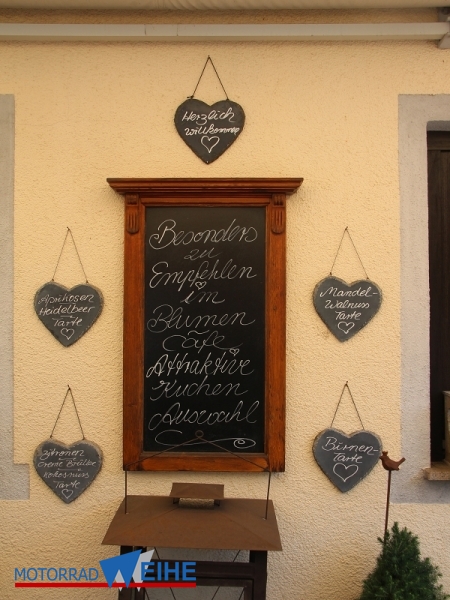 Herzlich
willkommen
Besonders
zu
Empfehlen
im
Blumen
Cafe
Attraktive
Kuchen
Auswahl
Aprikosen
Heidelbeer
Tarte
Mandel-
Walnuss
Tarte
Zitronen
Creme Brûlée
Kokosnuss
Tarte
Birnen-
Tarte
MOTORRAD WEIHE